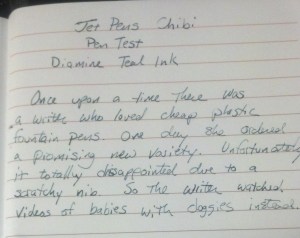 Jet Pens Chibi
Pen Test
Diamine Teal Ink
Once upon a time there was
a writer who loved cheap plastic
fountain pens. One day she ordered
a promising new variety. Unfortunately
it totally disappointed due to a
scratchy nib. So the writer watched
videos of babies with doggies instead.